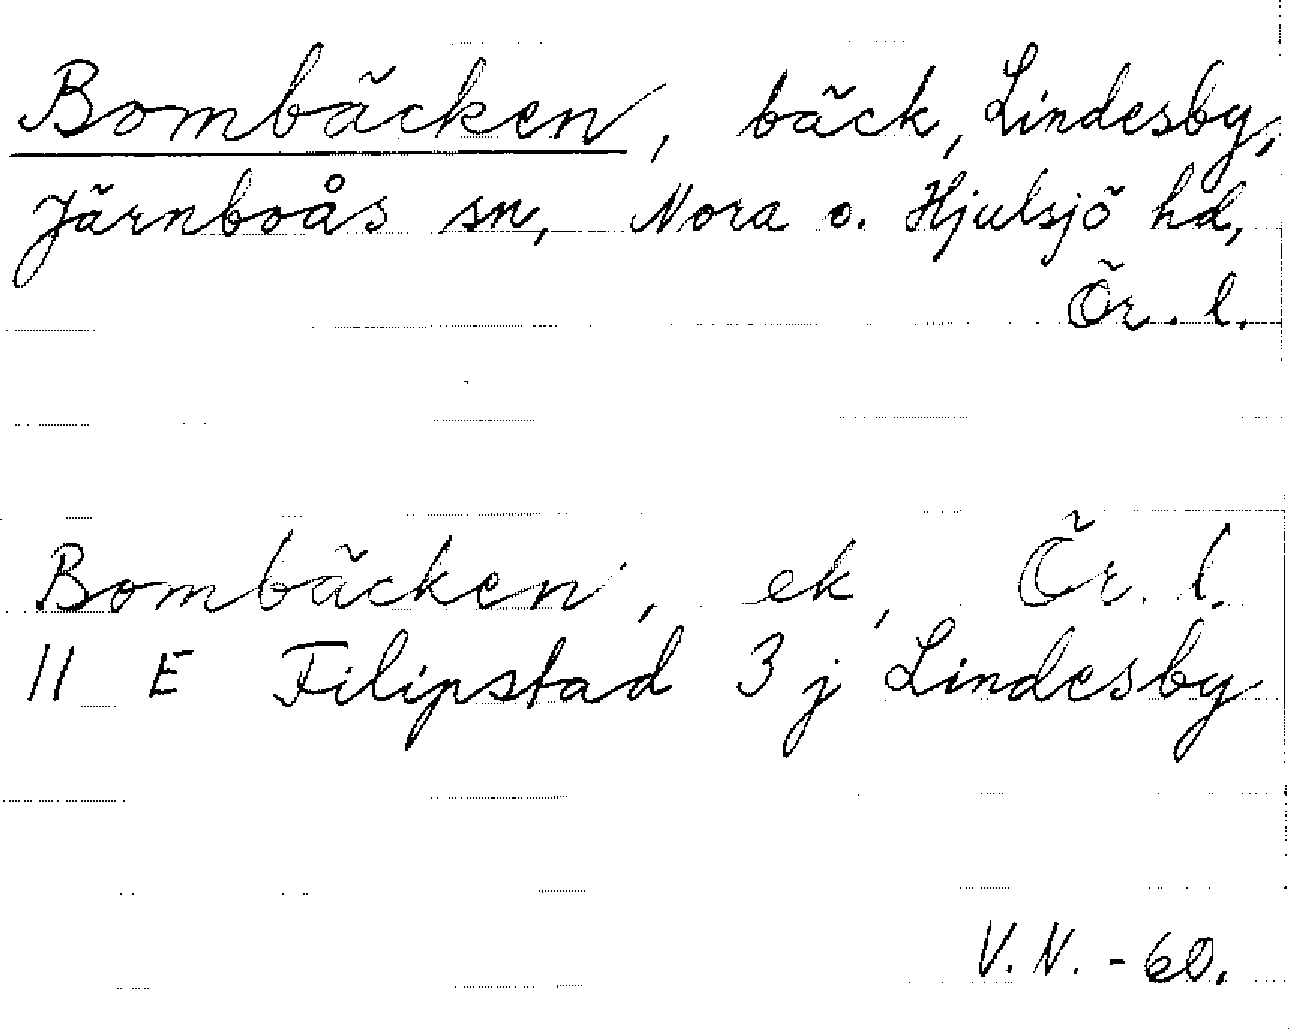 Bombäcken, bäck, Lindesby,
Järnboås sn, Nora o. Hjulsjö hd,
Ör. l.
Bombäcken, ek, Ör. l.
11 E Filipstad 3 j Lindesby
V. N. - 60.